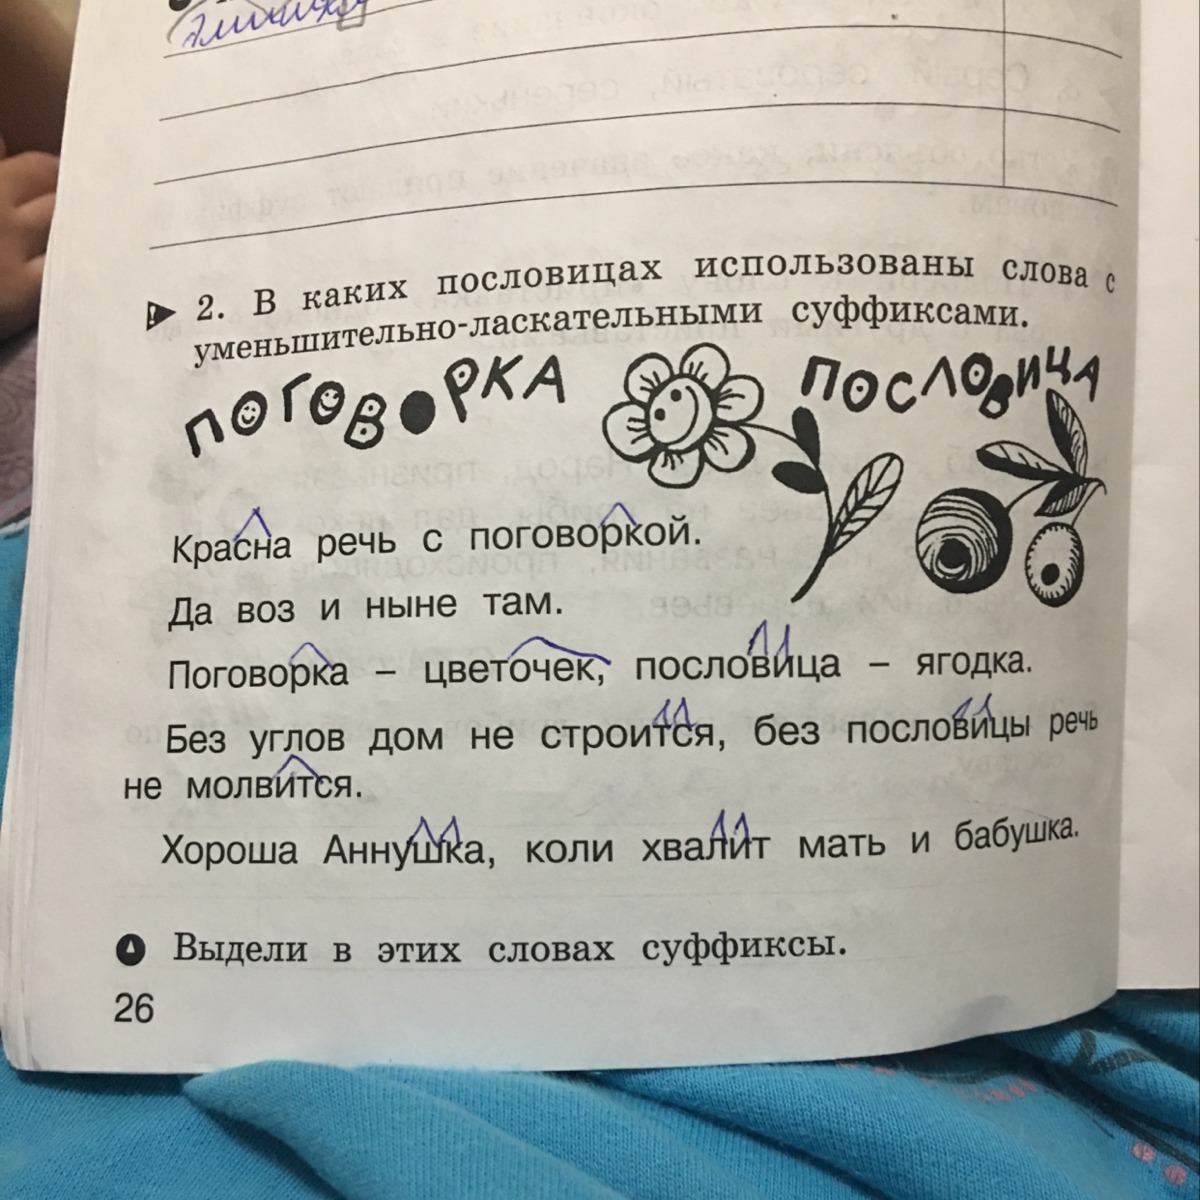 2. В каких пословицах использованы слова с
уменьшительно-ласкательными суффиксами.
ПОГОВОРКА ПОСЛОВИЦА
Красна речь с поговоркой.
Да воз и ныне там.
Поговорка – цветочек, пословица – ягодка.
Без углов дом не строится, без пословицы речь
не молвится.
Хороша Аннушка, коли хвалит мать и бабушка.
Выдели в этих словах суффиксы.
26